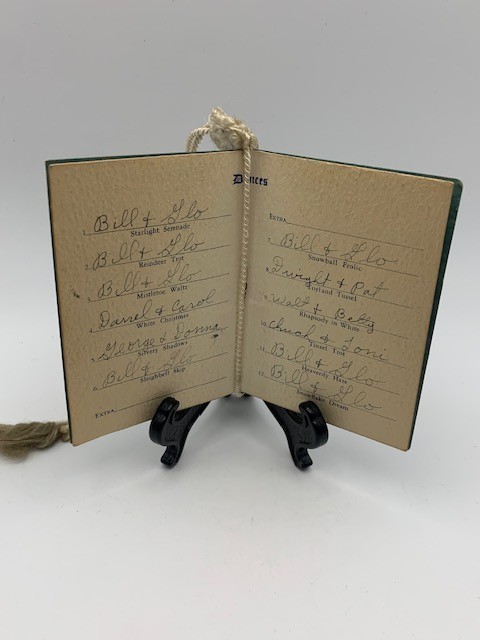 Dances
1. Bill & Glo
Starlight Serenade
2. Bill & Glo
Reindeer Trot
3. Bill & Glo
Mistletoe Waltz
4. Darrel & Carol
White Christmas
5. George & Donna
Silvery Shadows
6. Bill & Glo
Sleighbell Skip
Extra
Extra
Bill & Glo
Snowball Frolic
Dwight & Pat
Toyland Tussel
Walt & Betty
Rhapsody in White
10. Chuck & Toni
Tinsel Trot
11. Bill & Glo
Heavenly Haze
12. Bill & Glo
Dream